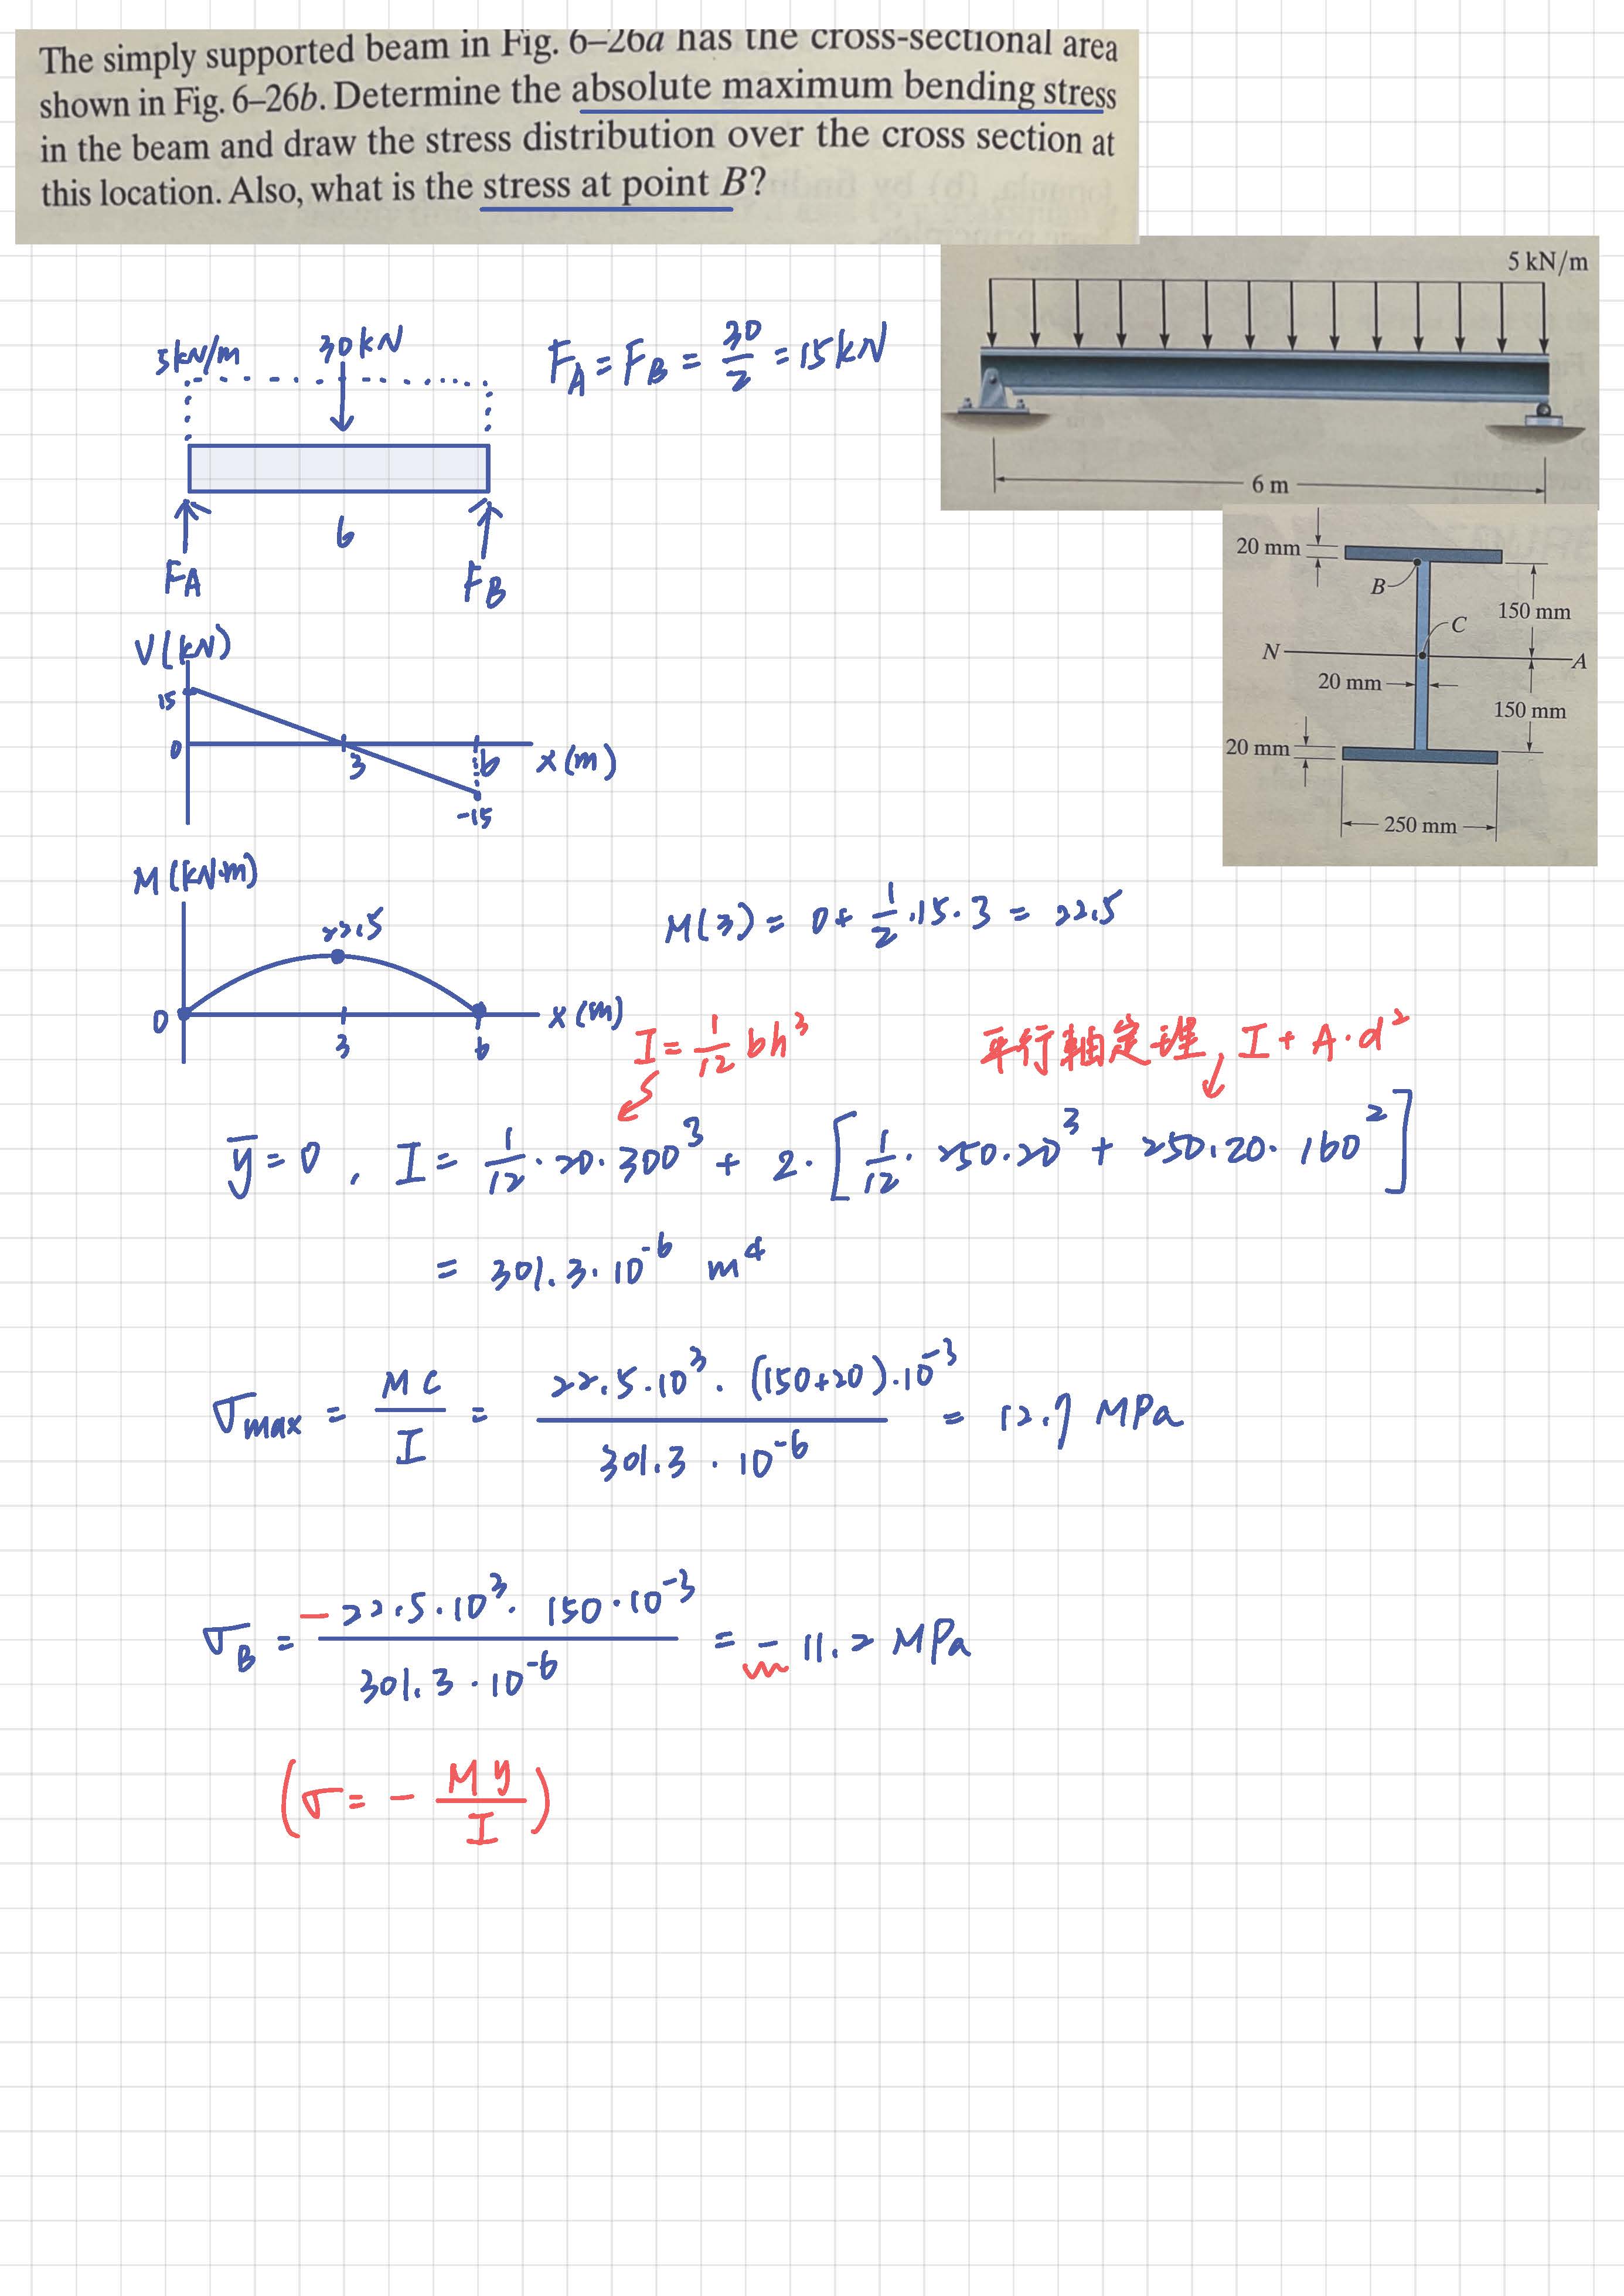 The simply supported beam in Fig. 6–26a has the cross-sectional area
shown in Fig. 6–26b. Determine the absolute maximum bending stress
in the beam and draw the stress distribution over the cross section at
this location. Also, what is the stress at point B?
5 kN/m
6 m
20 mm
B
150 mm
C
N
A
20 mm
150 mm
20 mm
250 mm
5kN/m
30kN
F_A = F_B = 30/2 = 15kN
6
F_A
F_B
V(kN)
15
0
3
6
x(m)
-15
M(kN·m)
22.5
M(3) = 0 + 1/2 · 15 · 3 = 22.5
0
3
6
x(m)
I = 1/12 bh³
平行軸定理, I + A·d²
ȳ = 0, I = 1/12 · 20 · 300³ + 2 · [1/12 · 250 · 20³ + 250 · 20 · 160²]
= 301.3 · 10⁻⁶ m⁴
σmax = MC/I = 22.5·10³ · (150+20)·10⁻³ / 301.3 · 10⁻⁶ = 12.7 MPa
σ_B = -22.5·10³ · 150·10⁻³ / 301.3 · 10⁻⁶ = -11.2 MPa
(σ = - My/I)